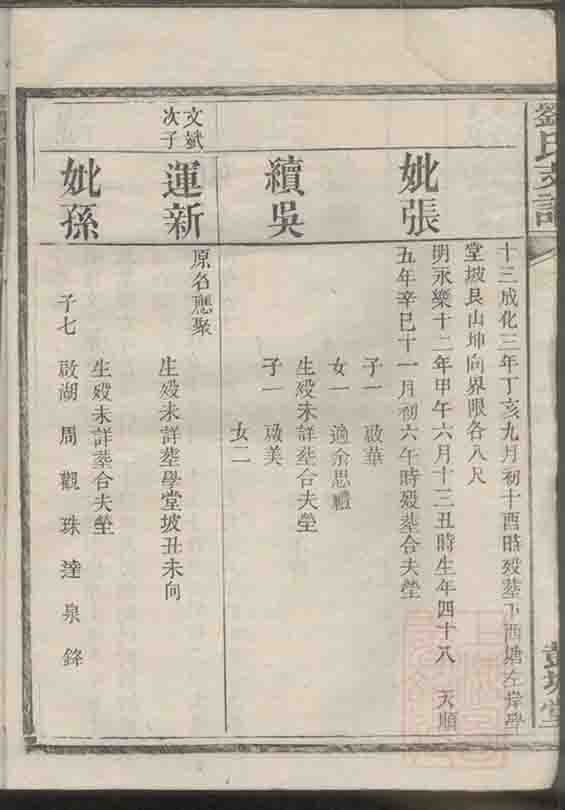 劉氏支譜
彭城堂
十三成化三年丁亥九月初十酉時歿塟下西塘左岸學
堂坡艮山坤向界限各八尺
妣張
明永樂十二年甲午六月十三丑時生年四十八 天順
五年辛巳十一月初六午時歿塟合夫塋
子一 啟華
女一 適余思禮
續吳
生歿未詳塟合夫塋
子一 啟美
女二
文斌
次子
運新
原名應聚
生歿未詳塟學堂坡丑未向
妣孫
生歿未詳塟合夫塋
子七 啟湖 周 觀 珠 達 泉 鋒